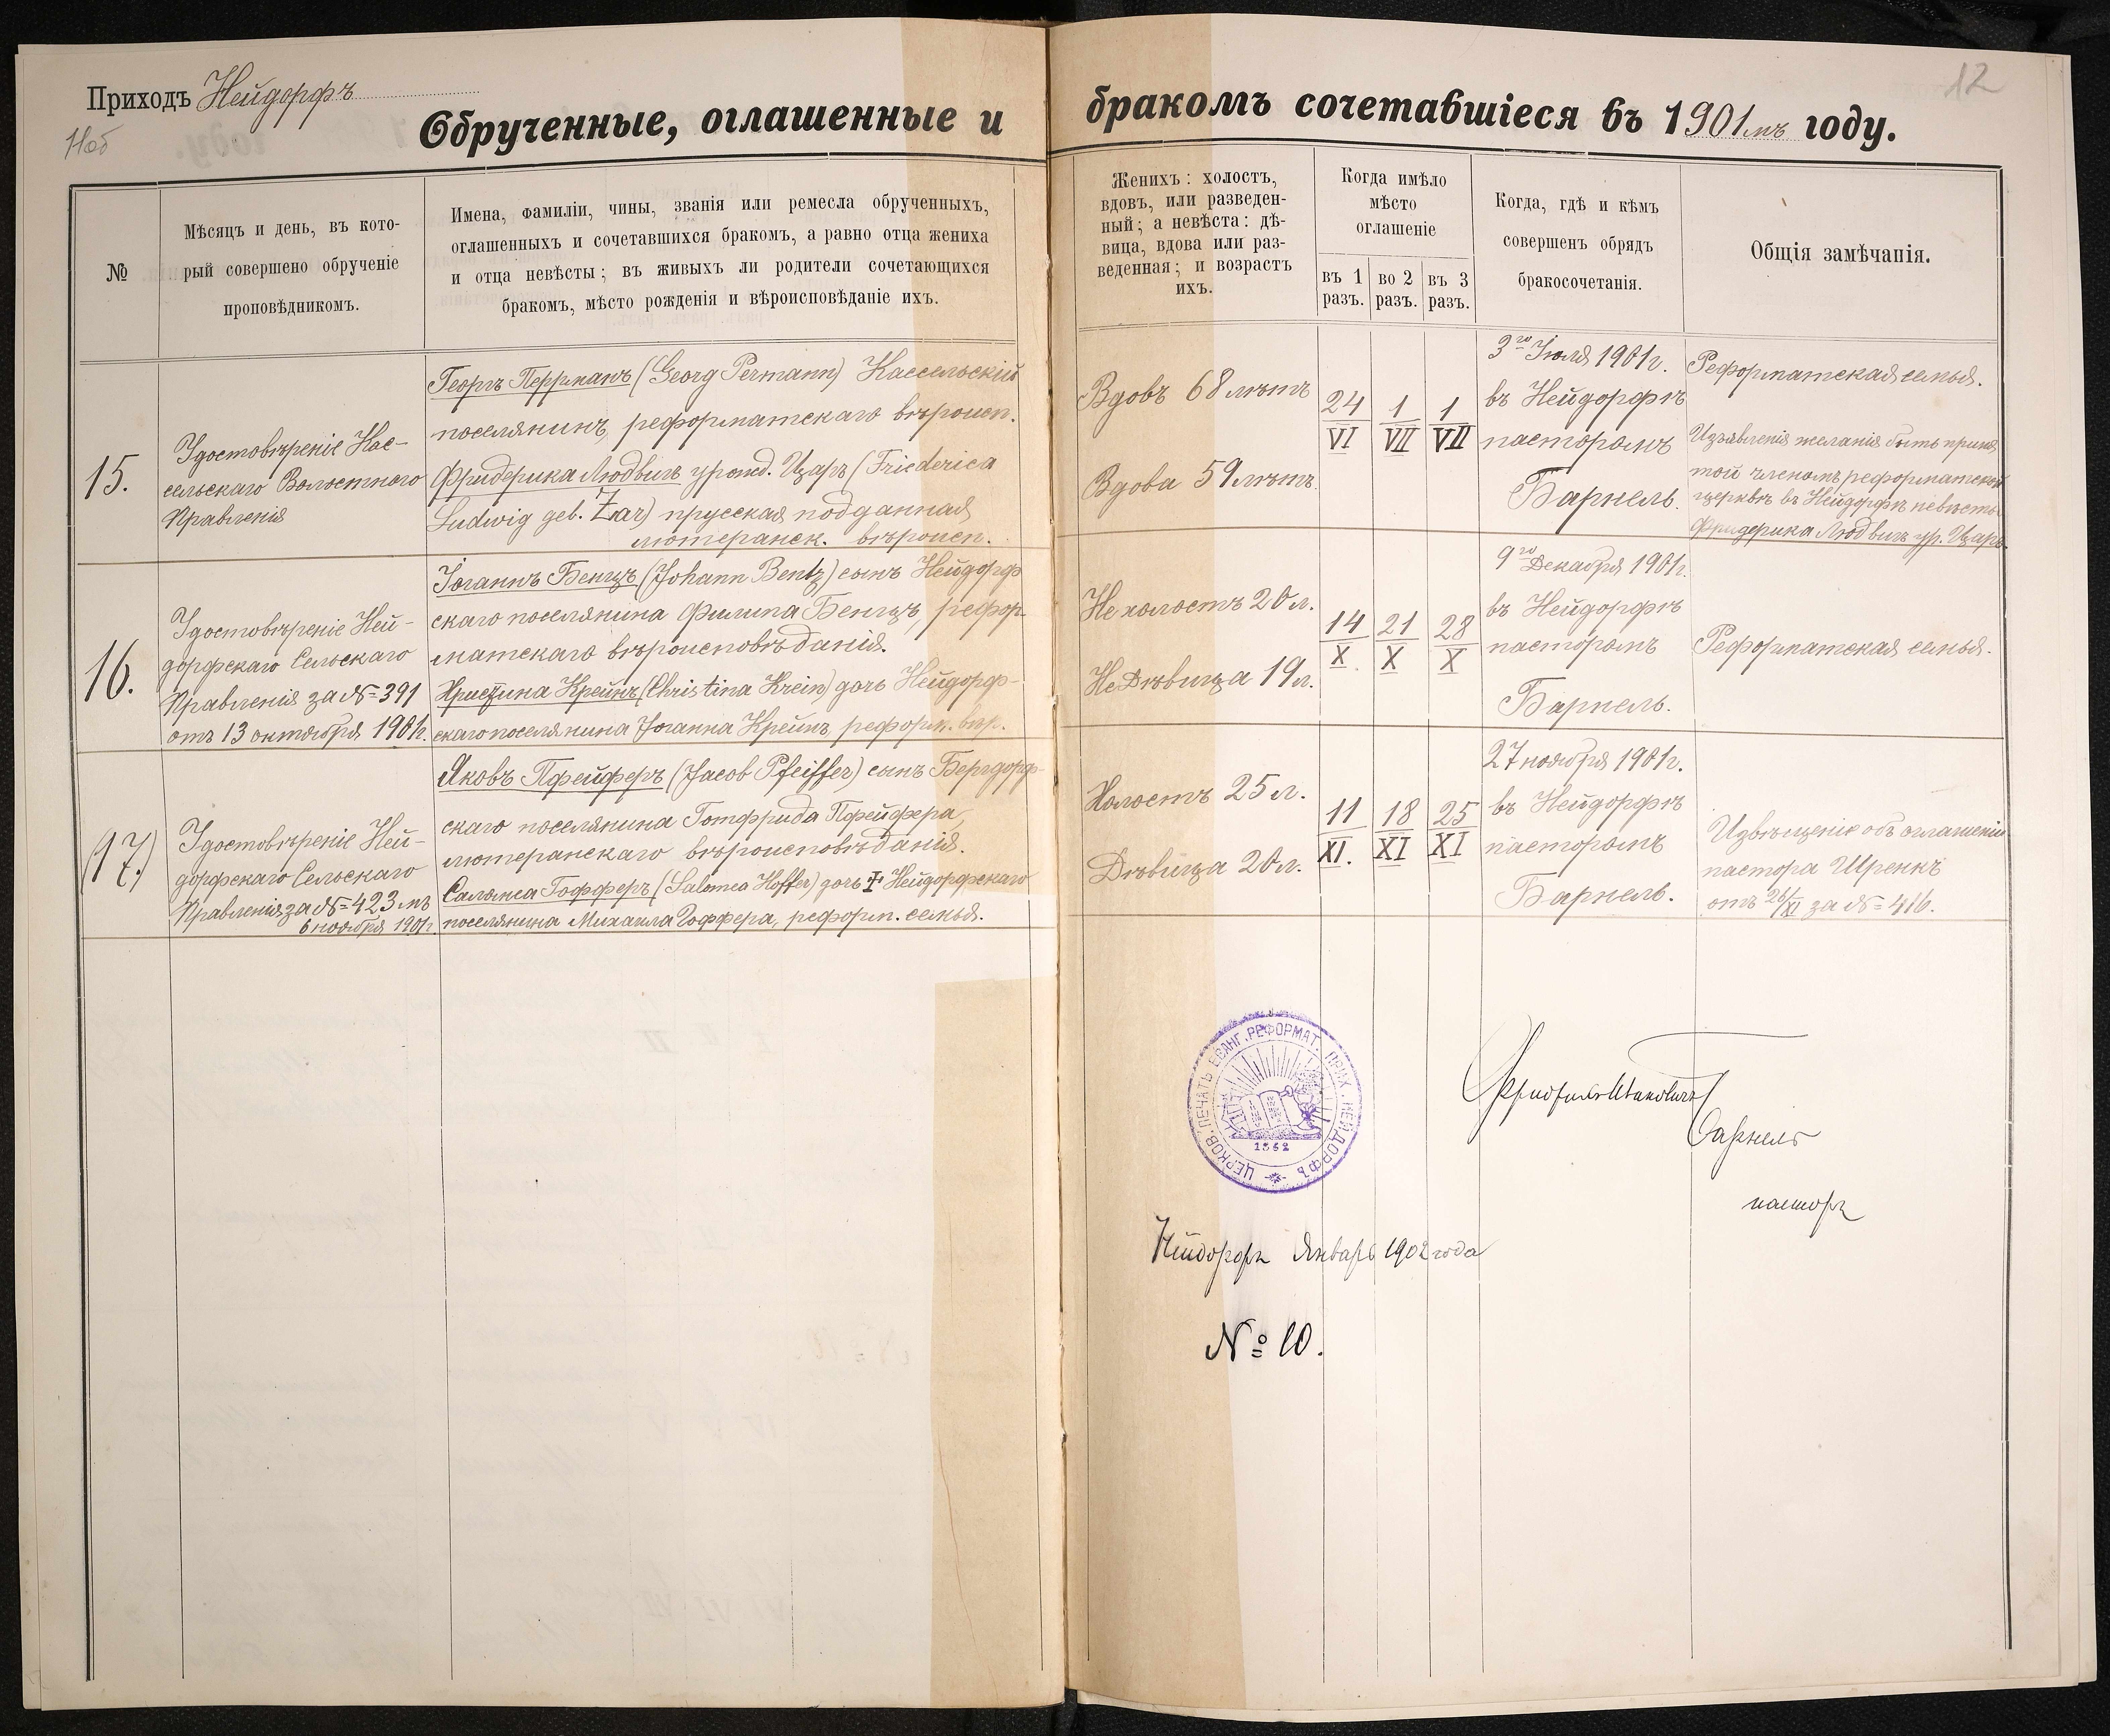 Приходъ Нейдорфъ
11об
12
Обрученные, оглашенные и бракомъ сочетавшіеся въ 1901мъ году.
№
Мѣсяцъ и день, въ кото-
рый совершено обрученіе
проповѣдникомъ.
Имена, фамиліи, чины, званія или ремесла обрученныхъ,
оглашенныхъ и сочетавшихся бракомъ, а равно отца жениха
и отца невѣсты; въ живыхъ ли родители сочетающихся
бракомъ, мѣсто рожденія и вѣроисповѣданіе ихъ.
Женихъ: холостъ,
вдовъ, или разведен-
ный; а невѣста: дѣ-
вица, вдова или раз-
веденная; и возрастъ
ихъ.
Когда имѣло
мѣсто
оглашеніе
въ 1
разъ.
во 2
разъ.
въ 3
разъ.
Когда, гдѣ и кѣмъ
совершенъ обрядъ
бракосочетанія.
Общія замѣчанія.
15.
Удостовѣреніе Кас-
сельскаго Волостного
Правленія
Георгъ Перрманъ (Georg Permann) Кассельскій
поселянинъ, реформатскаго вѣроисп.
Фридерика Людвигъ урожд. Царъ (Friederica
Ludwig geb. Zar) прусская подданная
лютеранск. вѣроисп.
Вдовъ 68 лѣтъ
Вдова 59 лѣтъ.
24
VI
1
VII
1
VII
3го Іюля 1901г.
въ Нейдорфѣ
пасторомъ
Барнель.
Реформатская семья.
Изъявленія желанія быть приня
той членомъ реформатской
церквѣ въ Нейдорфѣ невѣсты
Фридерика Людвигъ ур. Царъ.
16.
Удостовѣреніе Ней-
дорфскаго Сельскаго
Правленія за № 391
отъ 13 октября 1901г.
Іоганнъ Бенцъ (Johann Bentz) сынъ Нейдорф
скаго поселянина Филипа Бенцъ, рефор-
матскаго вѣроисповѣданія.
Христина Крейнъ (Christina Krein) дочь Нейдорф-
скаго поселянина Іоганна Крейнъ реформ. вѣр.
Не холостъ 20 л.
Не Дѣвица 19 л.
14
X
21
X
28
X
9го Декабря 1901г.
въ Нейдорфѣ
пасторомъ
Барнель.
Реформатская семья.
(17.)
Удостовѣреніе Ней-
дорфскаго Сельскаго
Правленія за № 423 мъ
6 ноября 1901г.
Яковъ Пфейферъ (Jacob Pfeiffer) сынъ Бергдорф-
скаго поселянина Готфрида Пфейфера,
лютеранскаго вѣроисповѣданія.
Саломеа Гофферъ (Salomea Hoffer) дочь † Нейдорфскаго
поселянина Михаила Гоффера, реформ. семья.
Холостъ 25 л.
Дѣвица 20 л.
11
XI.
18
XI
25
XI
27 ноября 1901г.
въ Нейдорфѣ
пасторомъ
Барнель.
Извѣщеніе объ оглашеніи
пастора Шренкъ
отъ 26/XI за № 416.
ЦЕРКОВ. ПЕЧАТЬ ЕВАНГ. РЕФОРМАТ. ПРИХ. НЕЙДОРФЪ
1862
Барнель
пасторъ
Нейдорфъ Январь 1902 года
№ 10.